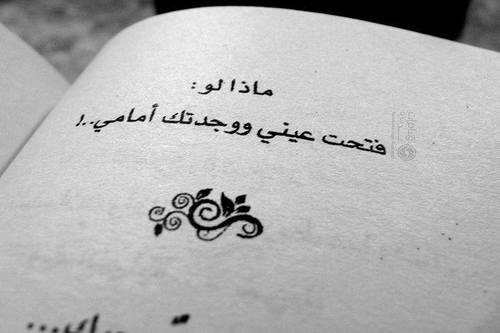 ماذا لو :
فتحت عيني ووجدتك أمامي..!